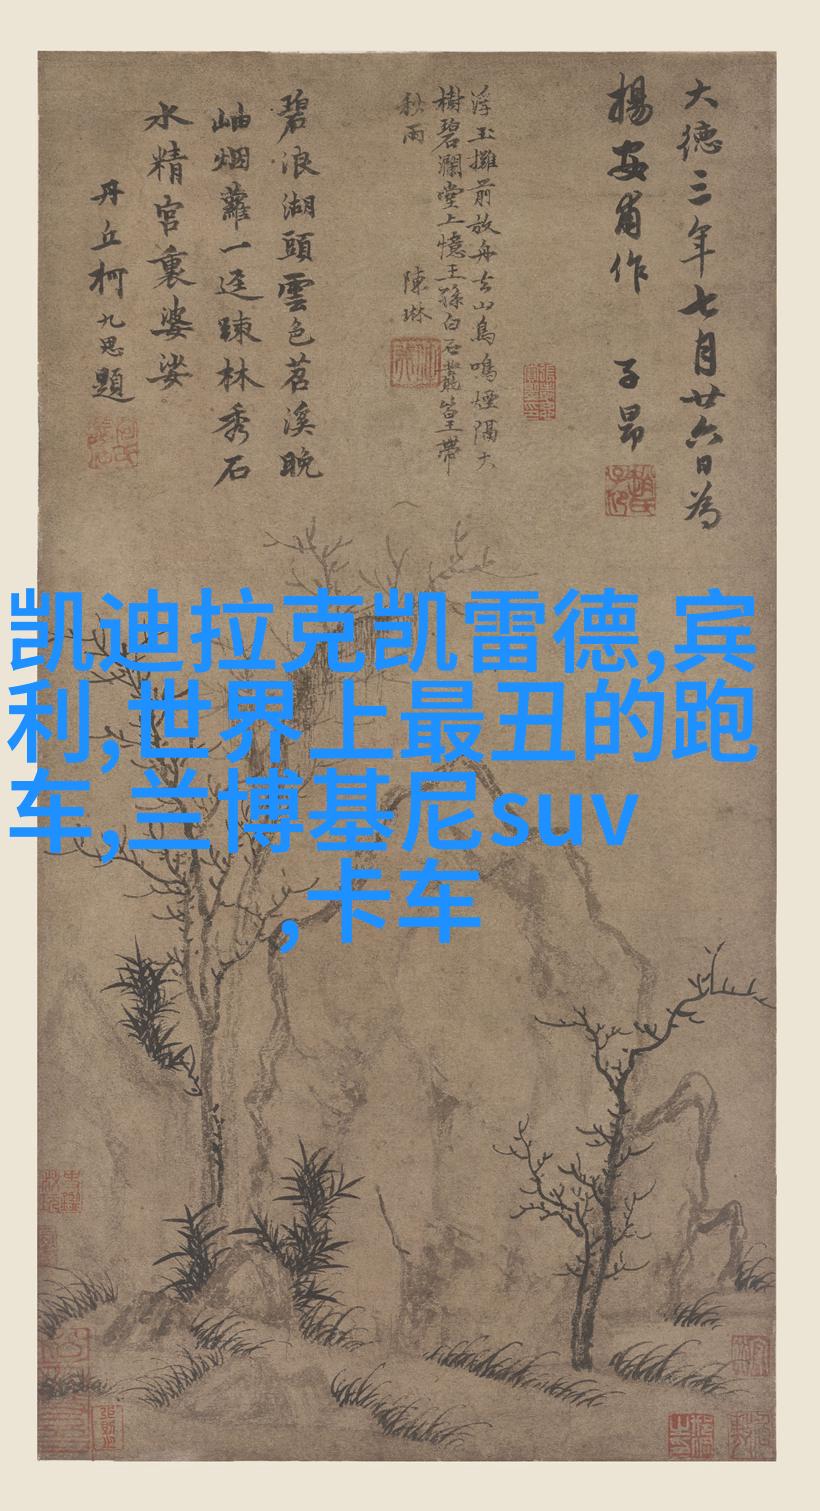 大德三年七月廿六日為
楊安甫作　子昂
浮玉攤前放舟去山鳥鳴煙隔大
樹碧瀾堂上憶王孫白石叢篁帶
秋雨　陳琳
碧浪湖頭雲色苕溪晚
岫烟蘿一逕踈林秀石
水精宮裏婆娑
丹丘柯九思題
凯迪拉克凯雷德,宾
利,世界上最丑的跑
车,兰博基尼suv
,卡车